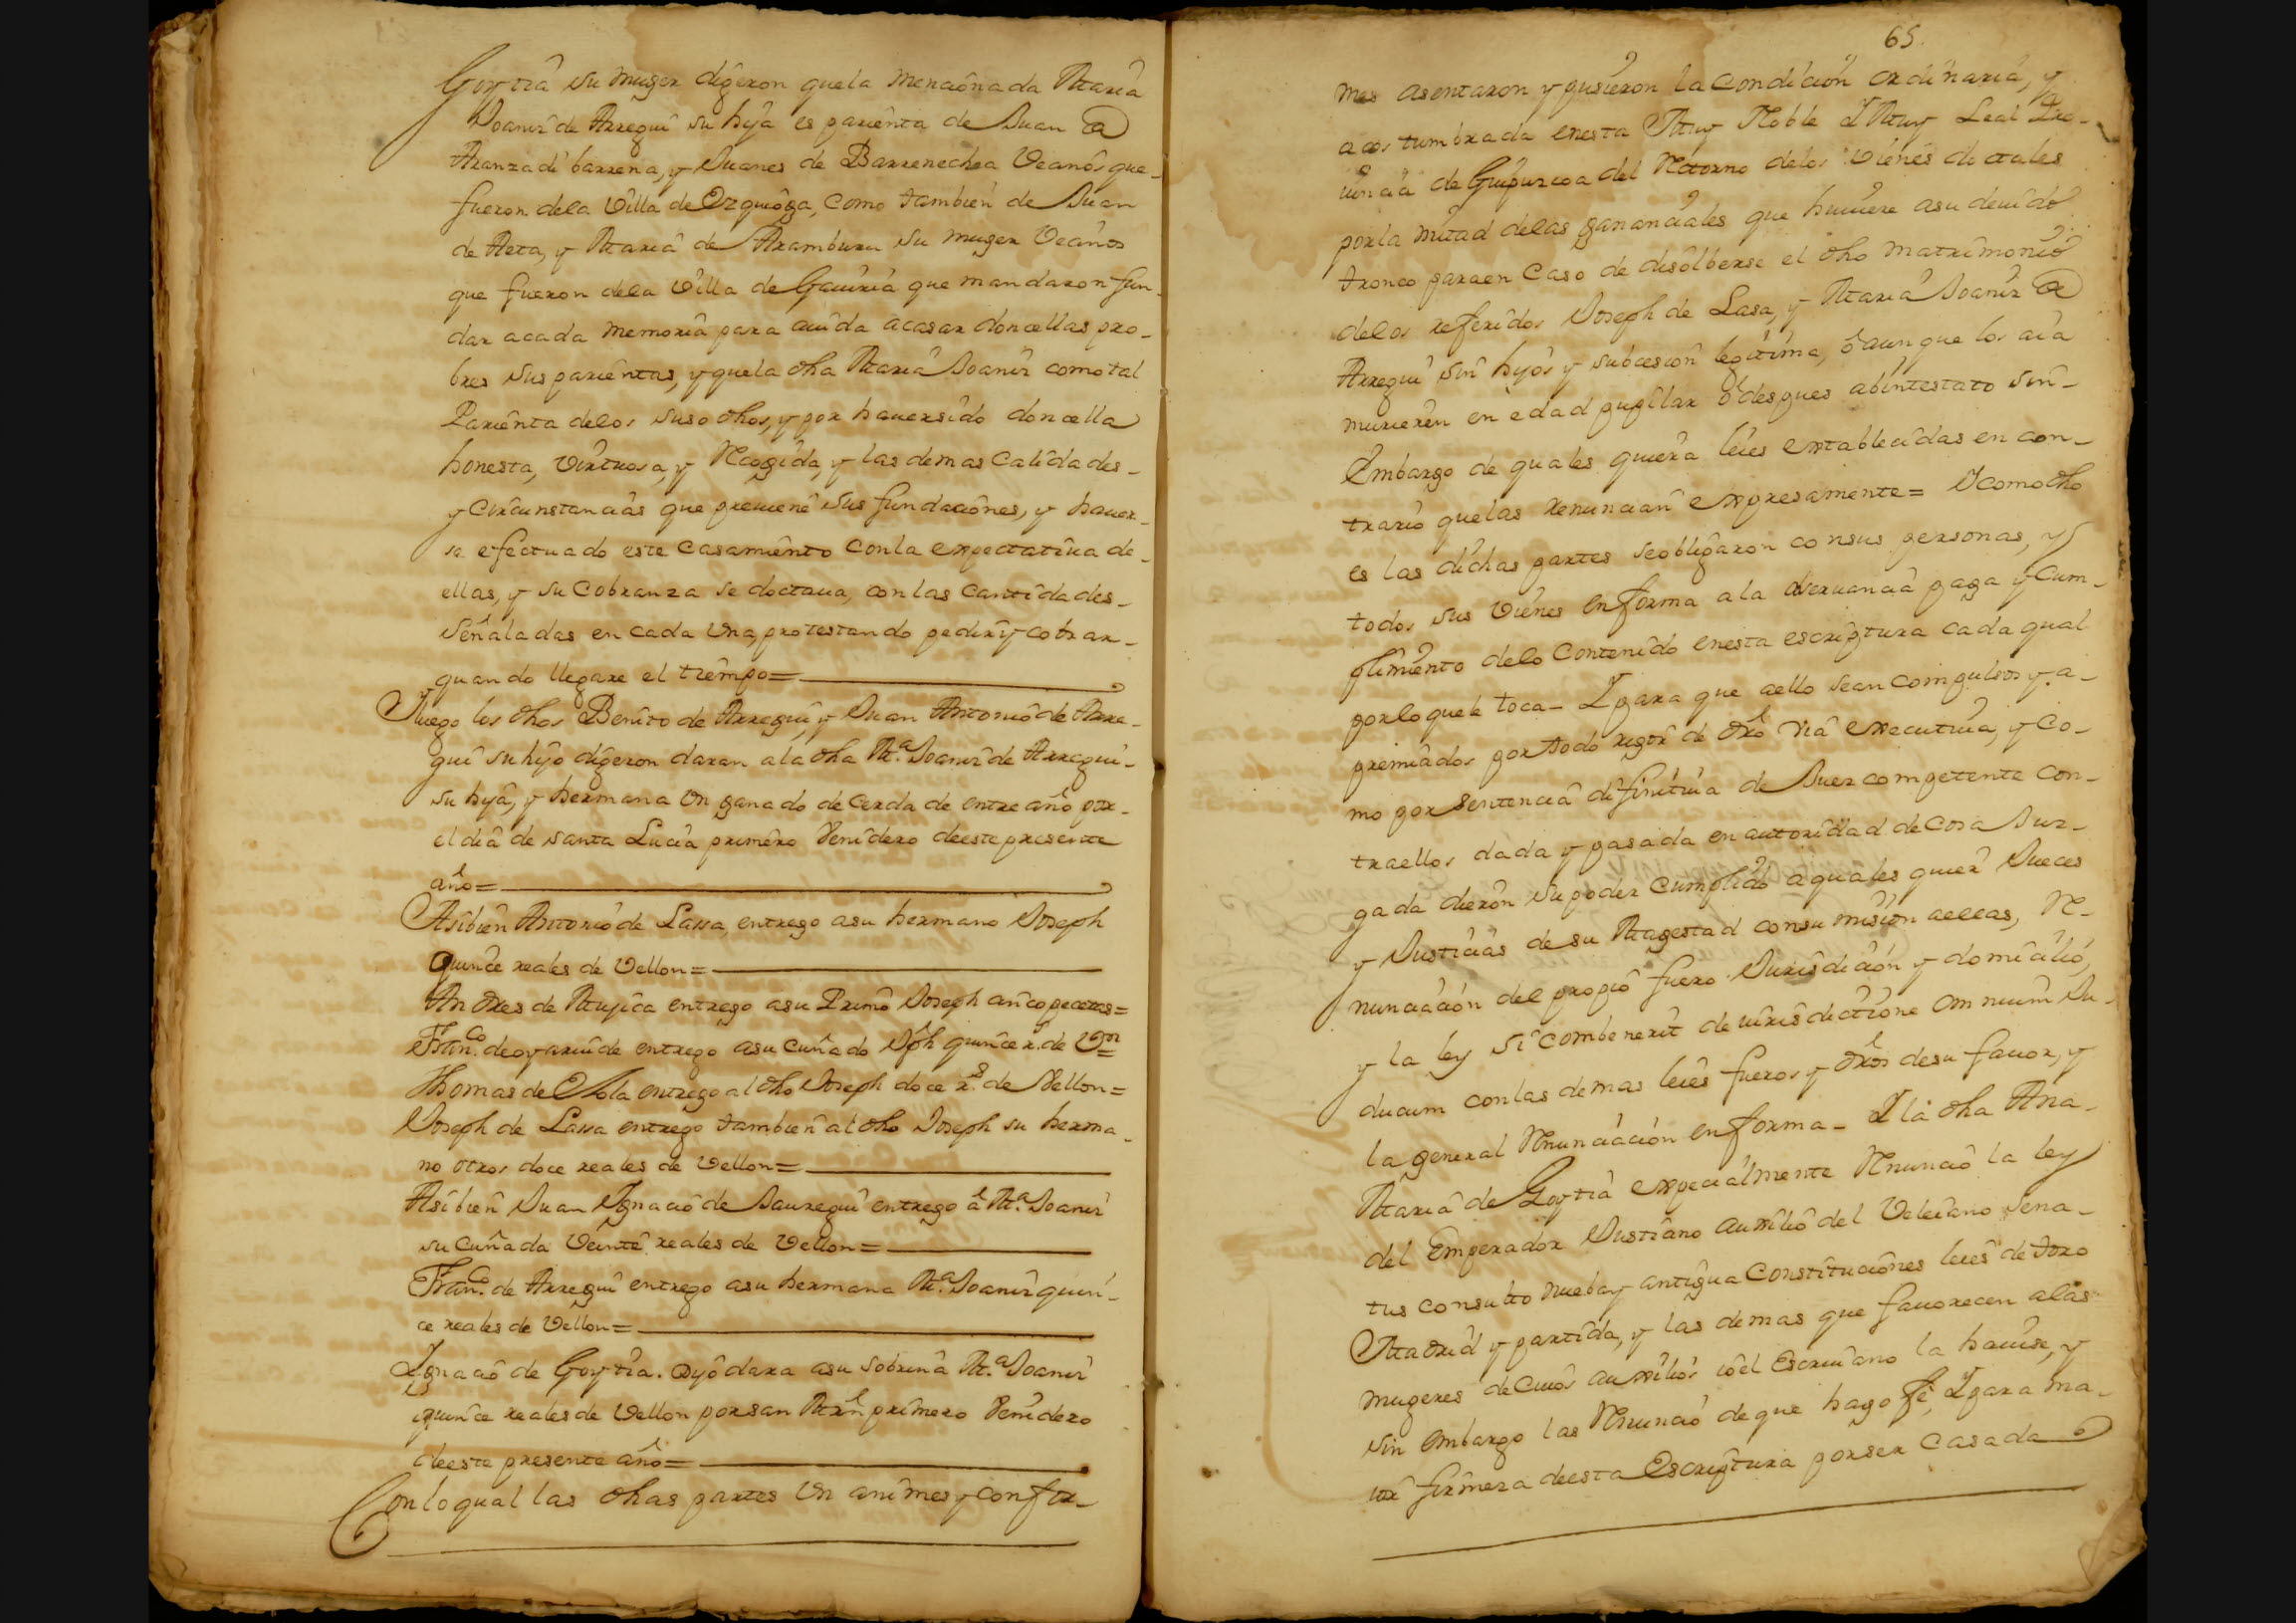 Goytia su muger digeron que la mencionada Maria
Joaniz de Arregui su hija es parienta de Juan de
Aranzadi barrena, y Juanes de Barrenechea Vecinos que
fueron dela Villa de Ezquioga, como tambien de Juan
de Aeta, y Maria de Aramburu su muger Vecinos
que fueron dela Villa de Gaviria que mandaron fun-
dar acada memoria para auida acasar doncellas pro-
bres sus parientas, y quela dha Maria Joaniz como tal
Parienta delos suso dhos, y por hauersido doncella
honesta, Virtuosa, y Recogida, y las demas Calidades-
y Circunstancias que preuiene sus fundaciones, y hauer-
se efectuado este casamiento conla expectatiua de-
ellas, y su Cobranza se doctaua, con las cantidades-
señaladas en cada Una, protestando pedir y cobrar-
quando llegare el tiempo=
Iluego los dhos Benito de Arregui, y Juan Antonio de Arre-
gui su hijo digeron daran ala dha Mª. Joaniz de Arregui-
su hija, y hermana Un ganado de Cerda de entre año por-
el dia de santa Lucia primero Venidero deeste presente
año=
Asibien Antonio de Lassa, entrego asu hermano Joseph
quince reales de Vellon=
Andres de Mujica entrego asu Primo Joseph cinco pecetas=
Franco. de oyaruide entrego asu cuñado Jph quince rs. de Von=
Thomas de Olola entrego al dho Joseph doce rs. de Vellon=
Joseph de Lassa entrego tambien al dho Joseph su herma-
no otros doce reales de Vellon=
Asibien Juan Ignacio de Jauregui entrego â Mª. Joaniz
su cuñada Veinte reales de Vellon=
Franco. de Arregui entrego asu hermana Mª. Joaniz quin-
ce reales de Vellon=
Ignacio de Goytia. oyo dara asu sobrina Mª. Joaniz
quince reales de Vellon por san Mrn primero Venidero
deeste presente año=
Con lo qual las dhas partes Un animes y confor-
65.
mes asentaron y pusieron la Condicion ordinaria, y
acostumbrada enesta Muy Noble I Muy Leal Pro-
uincia de Guipuzcoa del Retorno delos Vienes dotales
porla mitad delas gananciales que huuiere asu deuido
tronco para en Caso de disolberse el dho matrimonio
delos referidos Joseph de Lasa, y Maria Joaniz de
Arregui sin hijos y subcesion legitima, ô aun que los aia
murieren en edad pupilar ô despues abintestato sin-
Embargo de quales quiera leies establecidas en con-
trario quelas renuncian expresamente= I como dho
es las dichas partes se obligaron con sus personas, y
todos sus Vienes en forma a la observancia paga y cum-
plimiento delo Contenido enesta escriptura cada qual
por lo que le toca- I para que aello sean compulsos y a-
premiados por todo rigor de dro via executiua, y Co-
mo por Sentencia difinitiua de Juez competente con-
traellos dada y pasada en autoridad de Cosa Juz-
gada dieron su poder Cumplido a quales quier Jueces
y Justicias de su Magestad con sumision aellas, Re-
nunciacion del propio fuero Jurisdicion y domicilio,
y la ley si combenerit de iurisdictione omnium Ju-
ducum con las demas leies fueros y dros de su fauor, y
la general Renunciacion en forma- I la dha Ana-
Maria de Goytia expecialmente Renuncio la ley
del Emperador Justiano auxilio del Veleiano sena-
tus consulto nueba y antigua Constituciones leies de toro
Madrid y partida, y las demas que fauorecen alas
mugeres de cuios auxilios io el Escriuano la hauise, y
sin embargo las Renuncio de que hago fe, I para ma-
ior firmeza deesta Escriptura por ser Casada